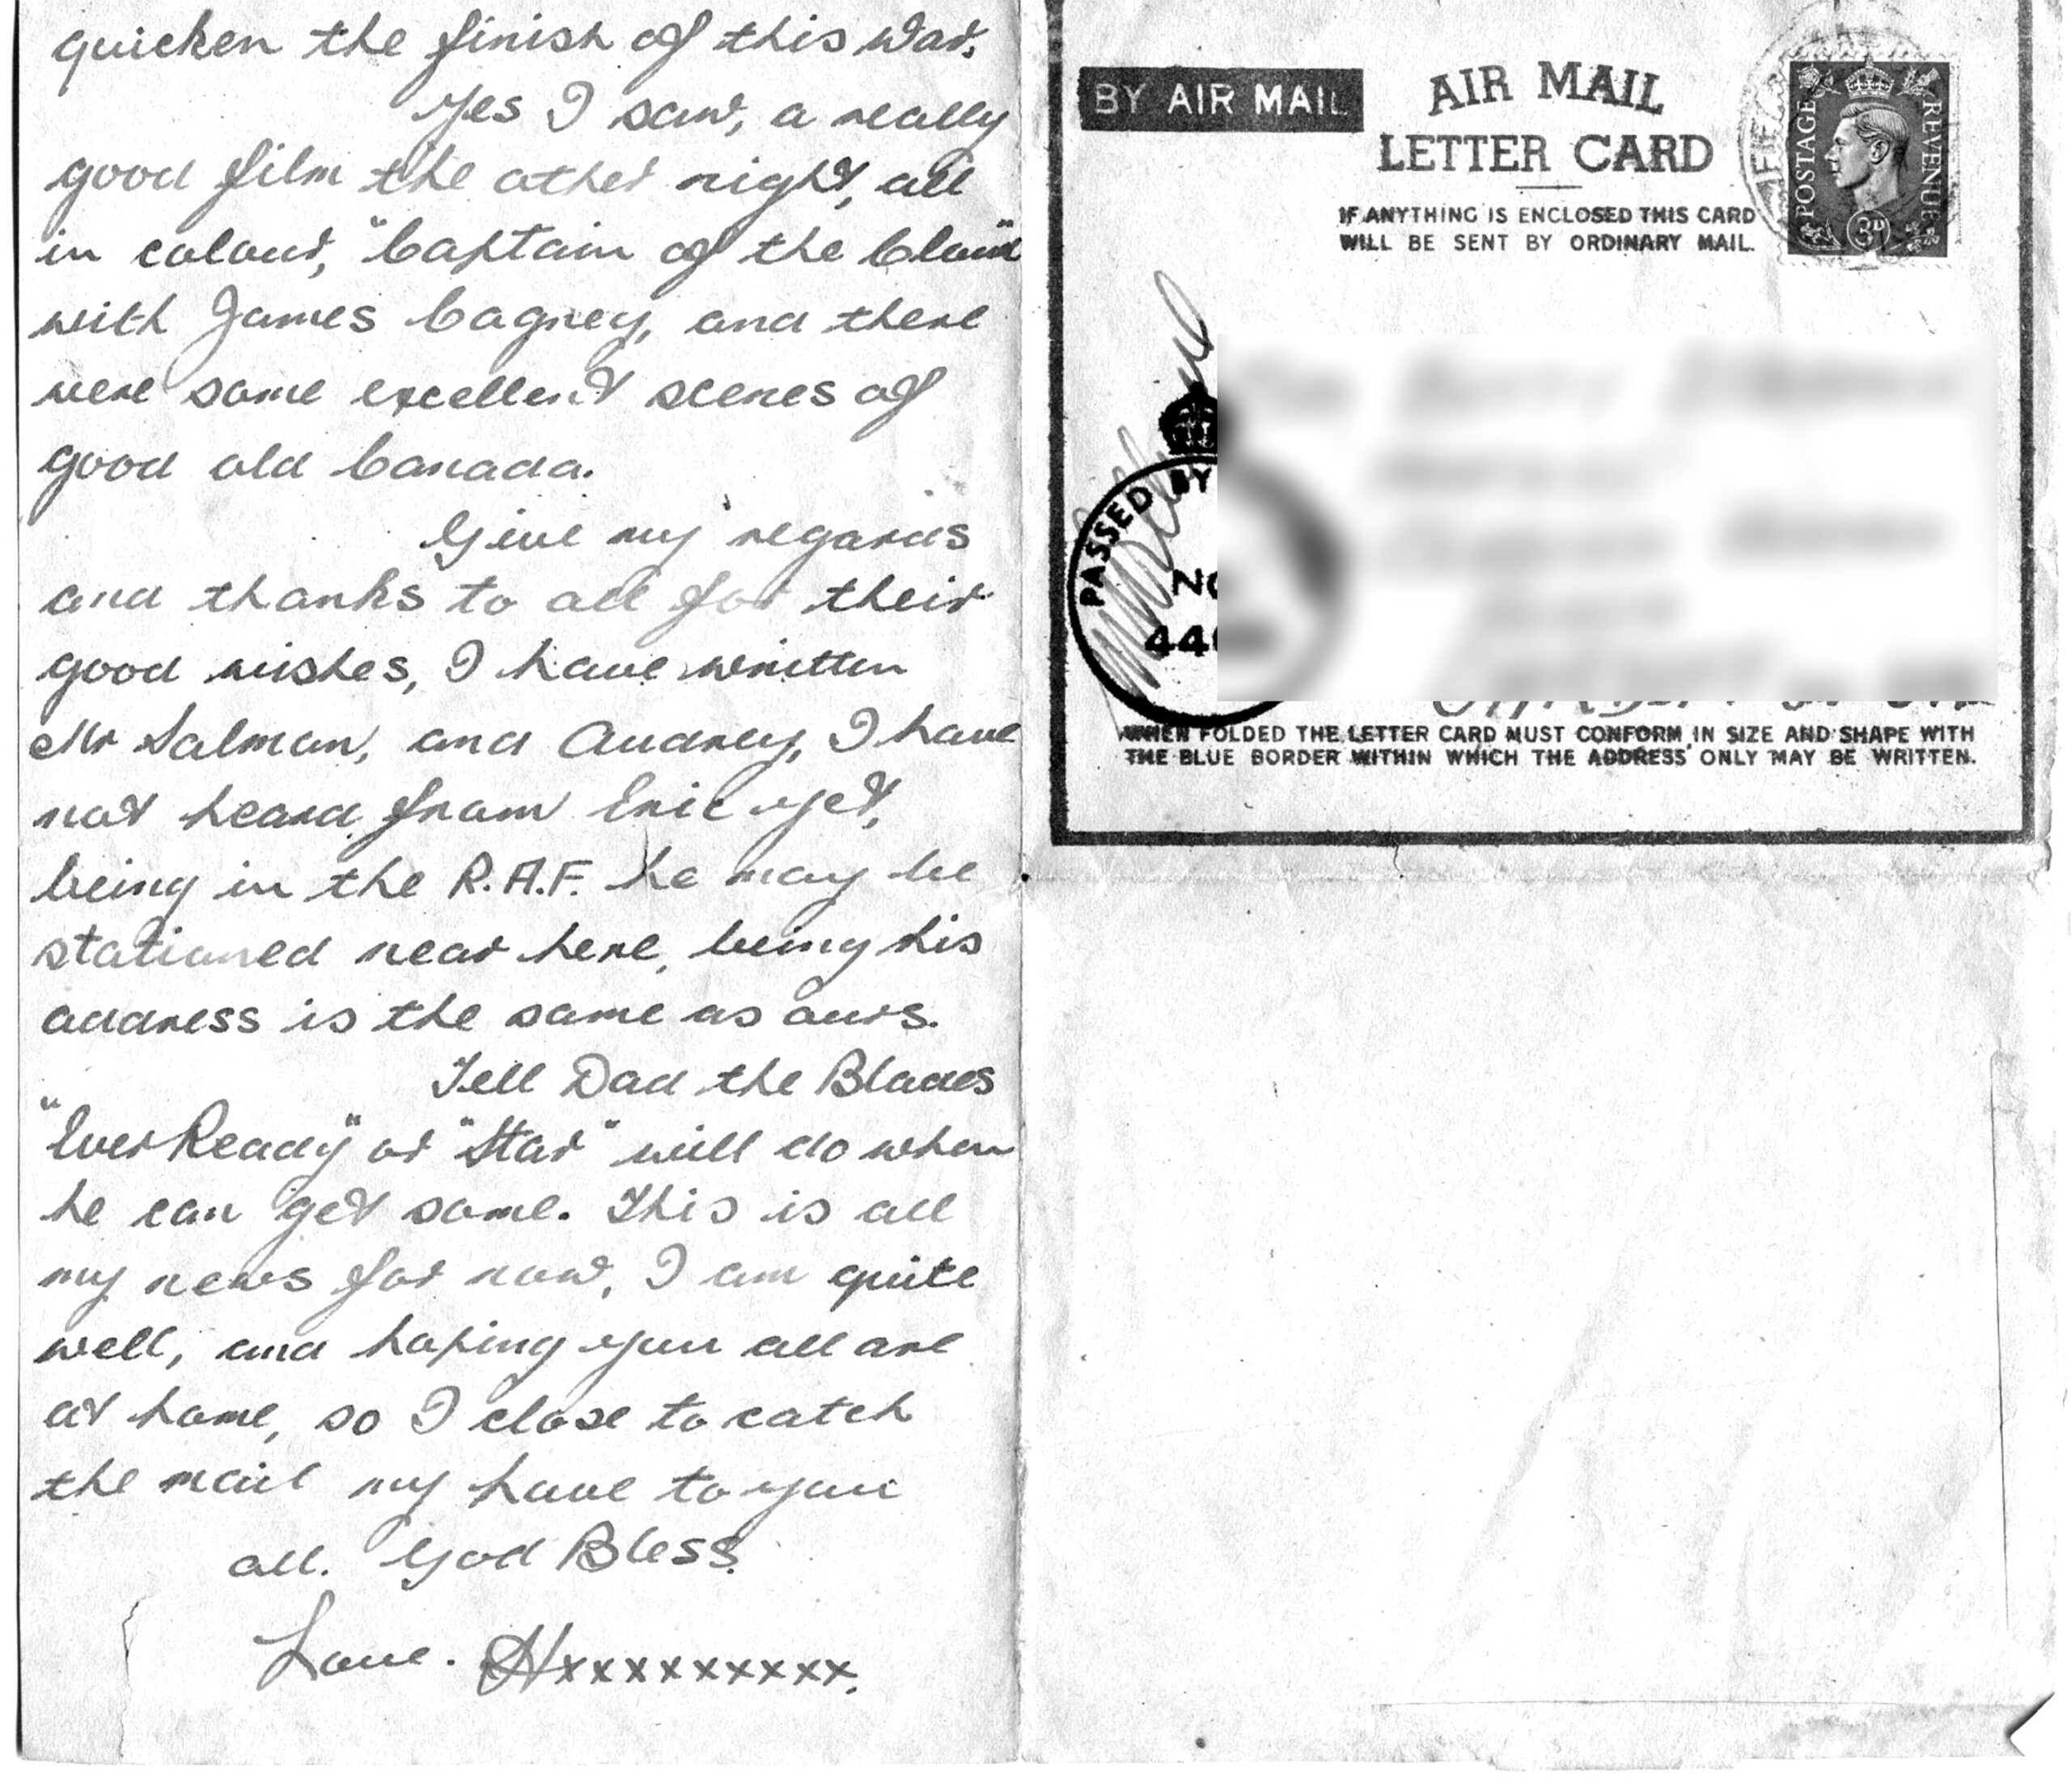 quicken the finish of this War.
Yes I saw, a really
good film the other night, all
in colour, "Captain of the Cloud"
with James Cagney, and there
were some excellent scenes of
good old Canada.
Give my regards
and thanks to all for their
good wishes, I have written
Mr Salman, and Audrey, I have
not heard from Eric yet,
being in the R.A.F. he may be
stationed near here, being his
address is the same as ours.
Tell Dad the Blades
"Ever Ready" or "Star" will do when
he can get some. This is all
my news for now, I am quite
well, and hoping you all are
at home, so I close to catch
the mail my love to you
all. God Bless.
Love. Hxxxxxxxxxx.
BY AIR MAIL
AIR MAIL
LETTER CARD
IF ANYTHING IS ENCLOSED THIS CARD
WILL BE SENT BY ORDINARY MAIL.
POSTAGE REVENUE
3D
PASSED BY
WHEN FOLDED THE LETTER CARD MUST CONFORM IN SIZE AND SHAPE WITH
THE BLUE BORDER WITHIN WHICH THE ADDRESS ONLY MAY BE WRITTEN.